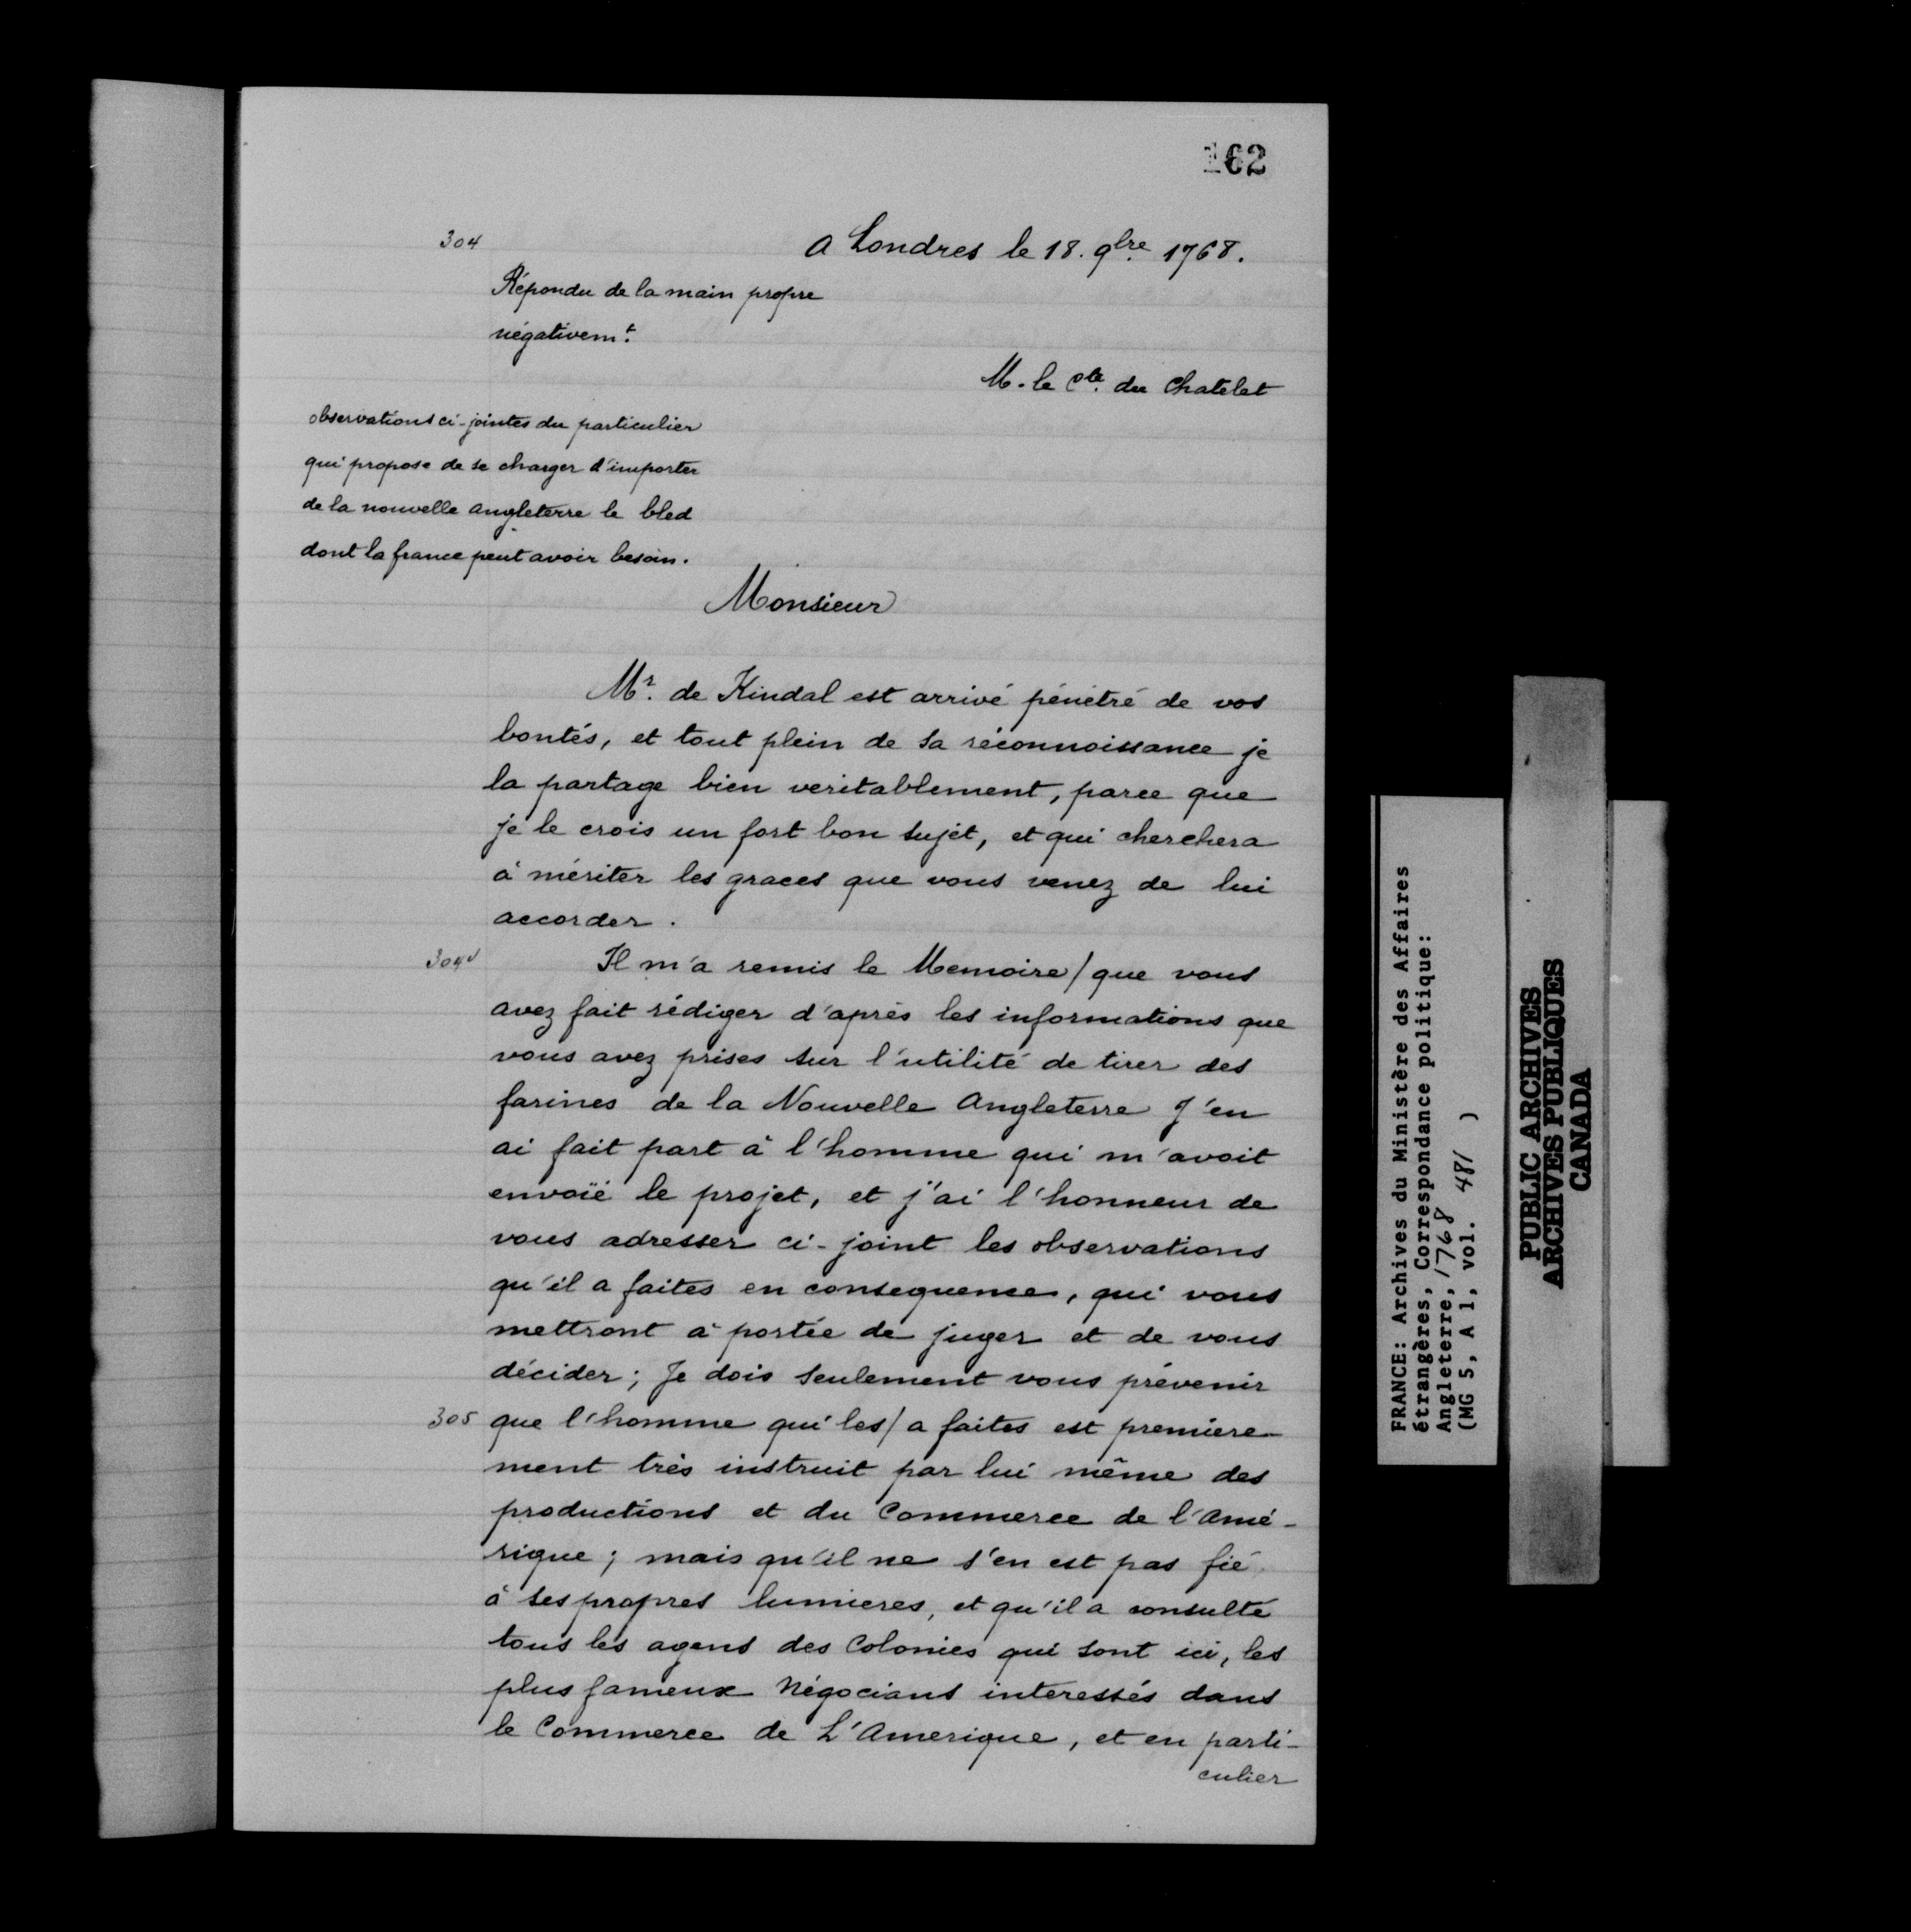 162
304
A Londres le 18. 9bre. 1768.
Répondu de la main propre
négativem.t
M. le Cte. du Chatelet
observations ci-jointes du particulier
qui propose de se charger d'importer
de la nouvelle angleterre le bled
dont la france peut avoir besoin.
Monsieur
Mr. de Kindal est arrivé pénétré de vos
bontés, et tout plein de sa réconnoissance je
la partage bien veritablement, parce que
je le crois un fort bon sujét, et qui cherchera
à mériter les graces que vous venez de lui
accorder.
304v
Il m'a remis le Memoire / que vous
avez fait rédiger d'après les informations que
vous avez prises sur l'utilité de tirer des
farines de la Nouvelle Angleterre J'en
ai fait part à l'homme qui m'avoit
envoïé le projet, et j'ai l'honneur de
vous adresser ci-joint les observations
qu'il a faites en consequence, qui vous
mettront à portée de juger et de vous
décider; Je dois seulement vous prévenir
305 que l'homme qui les / a faites est premiere-
ment très instruit par lui même des
productions et du Commerce de l'Amé-
rique; mais qu'il ne s'en est pas fié
à ses propres lumieres, et qu'il a consulté
tous les agens des Colonies qui sont ici, les
plus fameux Négocians interessés dans
le Commerce de L'Amerique, et en parti-
culier
FRANCE: Archives du Ministère des Affaires
étrangères, Correspondance politique:
Angleterre, 1768
(MG 5, A 1, vol. 481 )
PUBLIC ARCHIVES
ARCHIVES PUBLIQUES
CANADA